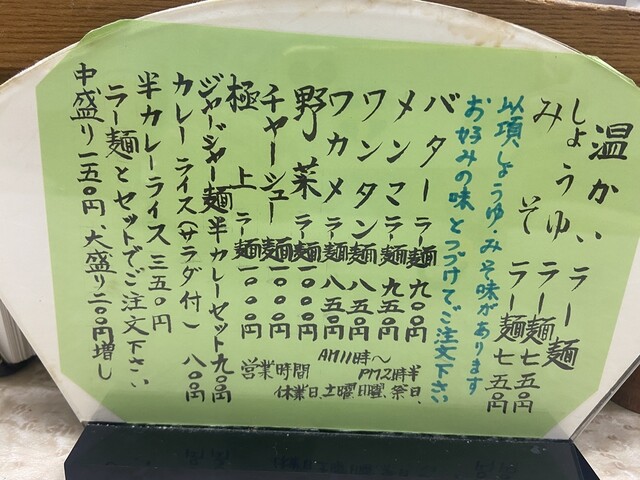 温かいラー麺
しょうゆラー麺七五〇円
みそラー麺七五〇円
以項しょうゆ・みそ味があります
お好みの味とつづけてご注文下さい
バターラー麺九〇〇円
メンマラー麺九五〇円
ワンタンラー麺八五〇円
ワカメラー麺八五〇円
野菜ラー麺一〇〇〇円
チャーシュー麺一〇〇〇円
極上ラー麺一〇〇〇円
ジャージャー麺半カレーセット九〇〇円
カレーライス(サラダ付)八〇〇円
半カレーライス三五〇円
ラー麺とセットでご注文下さい
中盛り一五〇円、大盛り二〇〇円増し
営業時間 AM11時〜PM2時半
休業日、土曜、日曜、祭日、